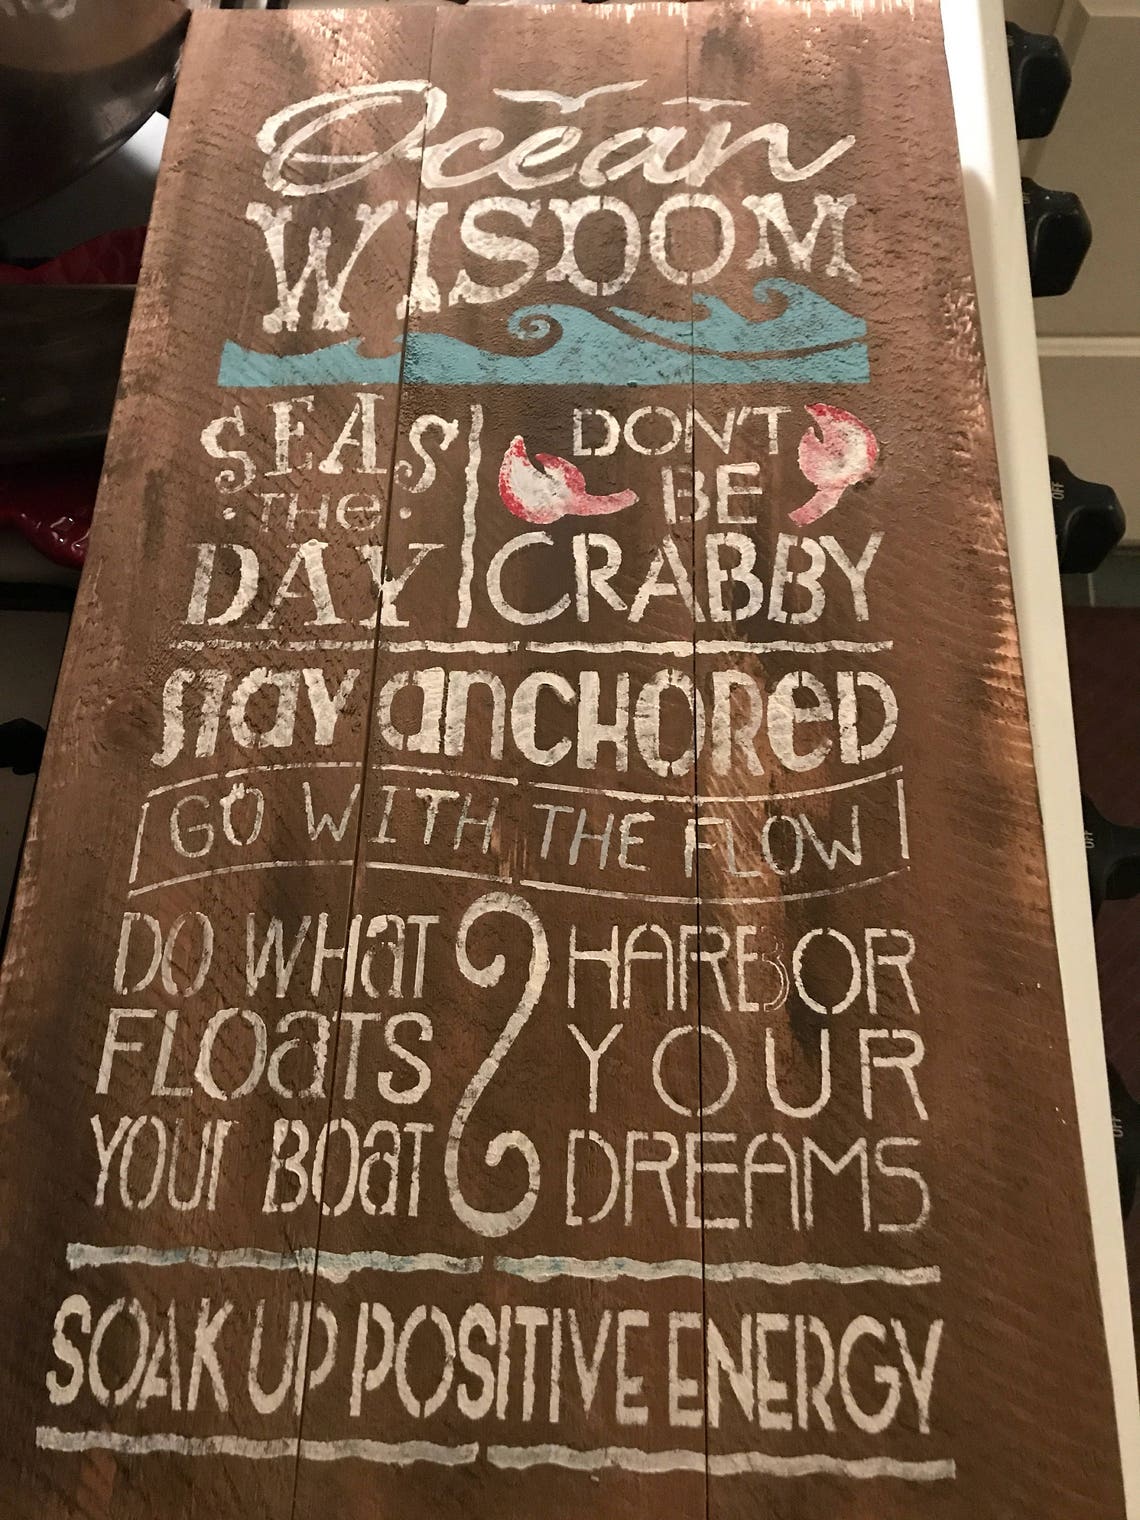 Ocean
WISDOM
SEAS
·THE·
DAY
DON'T
BE
CRABBY
Stay ANCHORED
GO WITH THE FLOW
DO WHaT
FLOaTS
YOUr BOaT
HARBOR
YOUR
DREAMS
SOAK UP POSITIVE ENERGY
OFF
OFF
OFF